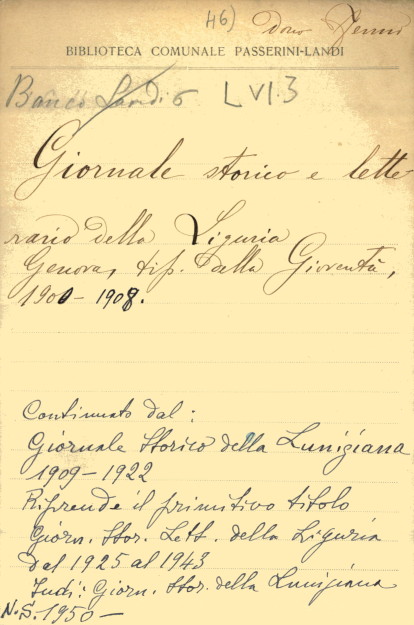 46) dono
BIBLIOTECA COMUNALE PASSERINI-LANDI
Banco Landi 6 L VI.3
Giornale storico e lette
rario della Liguria
Genova, tip. della Gioventù,
1900 - 1908.
Continuato dal:
Giornale Storico della Lunigiana
1909-1922
Riprende il primitivo titolo
Giorn. Stor. Lett. della Liguria
dal 1925 al 1943
Indi: Giorn. Stor. della Lunigiana
N.S. 1950-